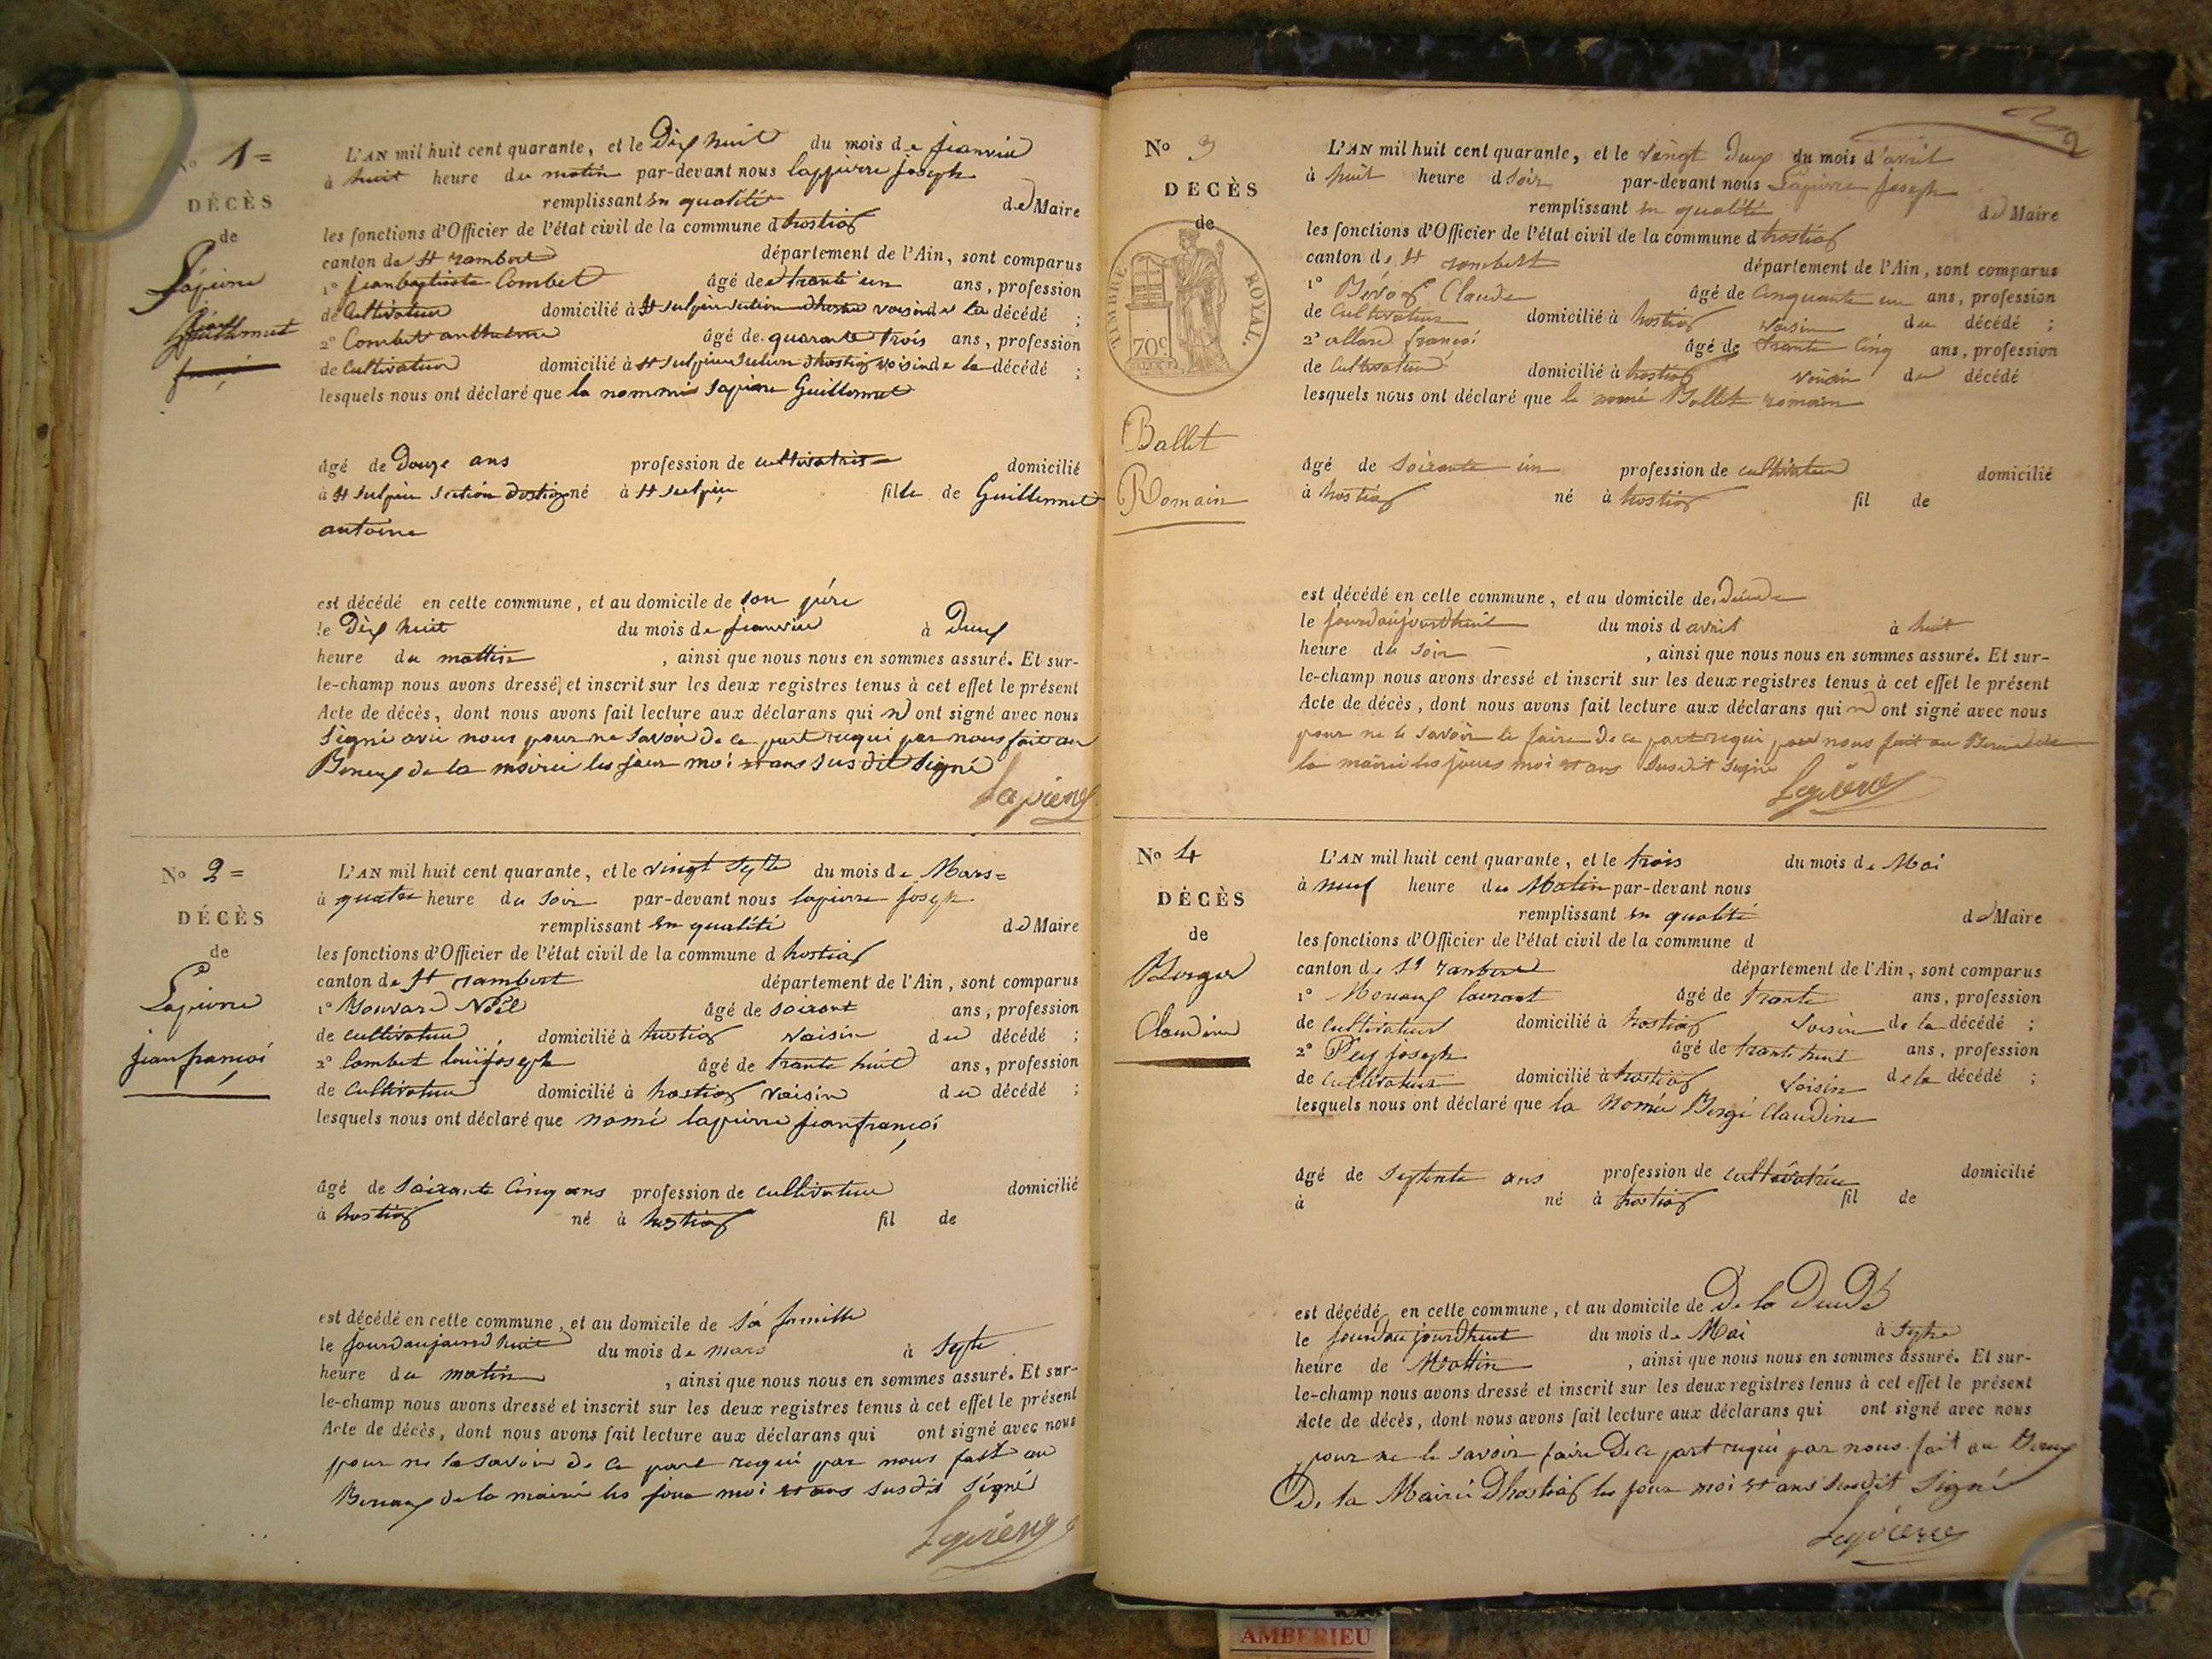 No 1=
DÉCÈS
de
L'AN mil huit cent quarante, et le Dix huit du mois de janvier
à huit heure du matin par-devant nous lapierre joseph
remplissant en qualité de Maire
les fonctions d'Officier de l'état civil de la commune d hostiaz
canton de St rambert département de l'Ain, sont comparus
1° jean baptiste Combet âgé de trante un ans, profession
de Cultivateur domicilié à St Sulpice section dhostiaz voisin de la décédé ;
2° Combet anthelme âgé de quarante trois ans, profession
de Cultivateur domicilié à St Sulpice section dhostiaz voisin de la décédé ;
lesquels nous ont déclaré que la nommé Guillermet
âgé de Douze ans profession de cultivatrise domicilié
à St Sulpice section dostiaz né à St Sulpice fille de Guillermet
antoine
est décédé en cette commune, et au domicile de son père
le Dix huit du mois de janvier à Deux
heure du mattin , ainsi que nous nous en sommes assuré. Et sur-
le-champ nous avons dressé et inscrit sur les deux registres tenus à cet effet le présent
Acte de décès, dont nous avons fait lecture aux déclarans qui n ont signé avec nous
Signé avec nous pour ne savoir de ce part requi par nous fait au
Bureux de la mairie les jour moi et ans susdit signé
Lapierre
No 2=
DÉCÈS
de
Lapierre
jean françoi
L'AN mil huit cent quarante, et le vingt Septe du mois de Mars=
à quatre heure du Soir par-devant nous lapierre joseph
remplissant en qualité de Maire
les fonctions d'Officier de l'état civil de la commune d hostiaz
canton de St rambert département de l'Ain, sont comparus
1° Bouvard Noël âgé de soixant ans, profession
de cultivateur domicilié à hostiaz voisin du décédé ;
2° Combet louï joseph âgé de trante huit ans, profession
de Cultivateur domicilié à hostiaz voisin du décédé ;
lesquels nous ont déclaré que nomé lapierre jean françoi
âgé de Soixante Cinq ans profession de cultivateur domicilié
à hostiaz né à hostiaz fil de
est décédé en cette commune, et au domicile de sa famille
le jourdaujourdhuit du mois de mars à Septe
heure du matin , ainsi que nous nous en sommes assuré. Et sur-
le-champ nous avons dressé et inscrit sur les deux registres tenus à cet effet le présent
Acte de décès, dont nous avons fait lecture aux déclarans qui ont signé avec nous
pour ne le savoir de ce part requi par nous fait au
Bureaux de la mairie les jour moi et ans susdit Signé
Lapierre
2
No 3
DECÈS
de
TIMBRE ROYAL.
70c
Ballet
Romain
L'AN mil huit cent quarante, et le vingt Deux du mois d'avril
à huit heure d soir par-devant nous Lapierre joseph
remplissant en qualité de Maire
les fonctions d'Officier de l'état civil de la commune d hostiaz
canton de St rambert département de l'Ain, sont comparus
1° Claude âgé de Cinquante un ans, profession
de Cultivateur domicilié à hostiaz voisin du décédé ;
2° allard françoi âgé de trante Cinq ans, profession
de Cultivateur domicilié à hostiaz voisin du décédé
lesquels nous ont déclaré que le nomé Ballet romain
âgé de Soixante un profession de cultivateur domicilié
à hostiaz né à hostiaz fil de
est décédé en cette commune, et au domicile de
le jourdaujourdhuit du mois d avril à huit
heure du soir , ainsi que nous nous en sommes assuré. Et sur-
le-champ nous avons dressé et inscrit sur les deux registres tenus à cet effet le présent
Acte de décès, dont nous avons fait lecture aux déclarans qui n ont signé avec nous
pour ne le savoir le faire de ce part requi par nous fait au
la mairie les jours moi et ans susdit signé
Lapierre
No 4
DÉCÈS
de
Berger
Claudine
L'AN mil huit cent quarante, et le trois du mois de Mai
à neuf heure du Matin par-devant nous
remplissant en qualité de Maire
les fonctions d'Officier de l'état civil de la commune d
canton de St rambert département de l'Ain, sont comparus
1° laurant âgé de trante ans, profession
de Cultivateur domicilié à hostiaz voisin de la décédé ;
2° joseph âgé de trante huit ans, profession
de Cultivateur domicilié à hostiaz voisin de la décédé ;
lesquels nous ont déclaré que la Nomée Bergé Claudine
âgé de Septente ans profession de cultivatrice domicilié
à né à hostiaz fil de
est décédé, en cette commune, et au domicile de De la
le jourdaujourdhuit du mois de Mai à Septe
heure de Mattin , ainsi que nous nous en sommes assuré. Et sur-
le-champ nous avons dressé et inscrit sur les deux registres tenus à cet effet le présent
Acte de décès, dont nous avons fait lecture aux déclarans qui ont signé avec nous
pour ne le savoir faire De ce part requi par nous fait au Bureux
De la Mairie Dhostiaz les jour moi et ans susdit Signé
Lapierre
AMBERIEU